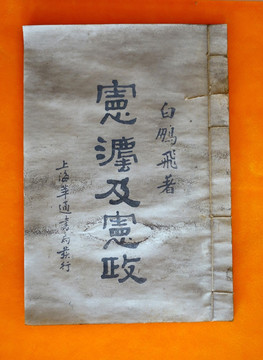 白鵬飛著
憲灋及憲政
上海華通書局發行